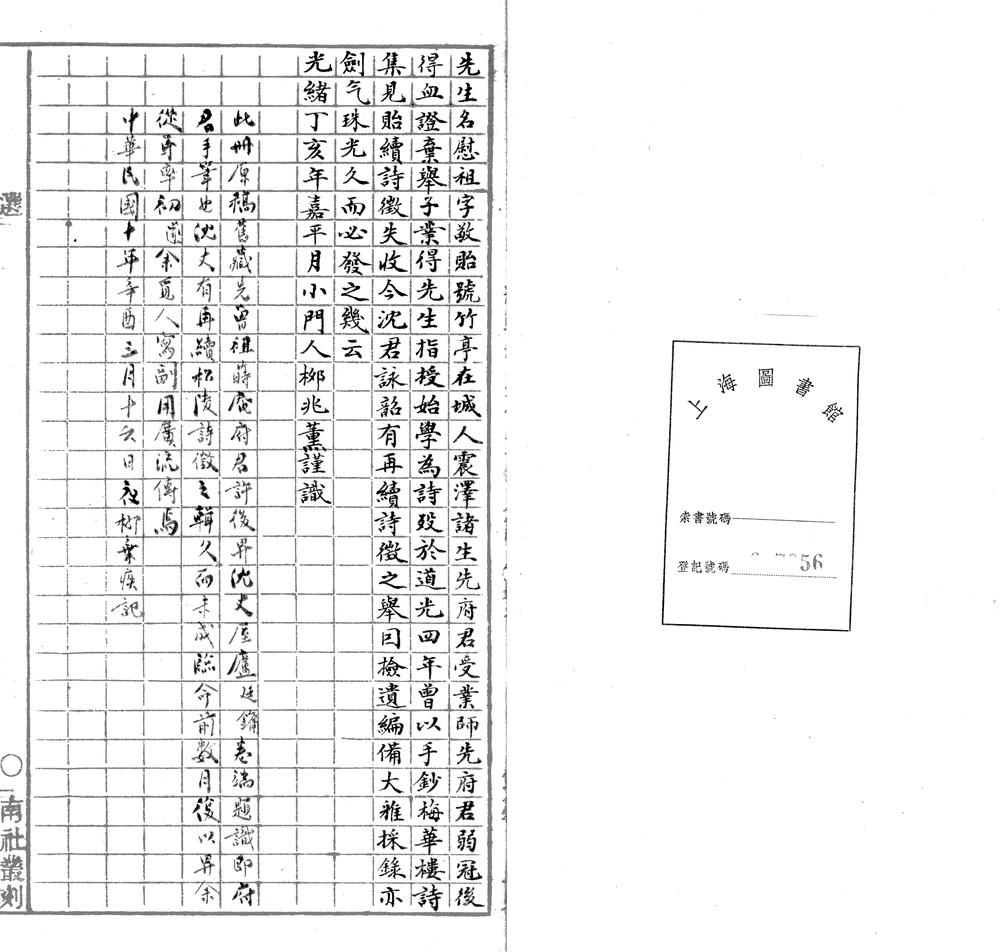 上海圖書館
索書號碼
登記號碼
56
先生名慰祖字敬貽號竹亭在城人震澤諸生先府君受業師先府君弱冠後
得血證棄舉子業得先生指授始學為詩歿於道光四年曾以手鈔梅華樓詩
集見貽續詩徵失收今沈君詠韶有再續詩徵之舉因檢遺編備大雅採錄亦
劍气珠光久而必發之幾云
光緒丁亥年嘉平月小門人柳兆薰謹識
此冊原稿舊藏先曾祖蒔庵府君許後畀沈丈屋廬廷鏞卷端題識即府
君手筆也沈丈有再續松陵詩徵之輯久而未成臨命前數月復以畀余
從舅率初余覓人寫副用廣流傳焉
中華民國十年辛酉三月十六日夜柳棄疾記
選
〇
南社叢刻